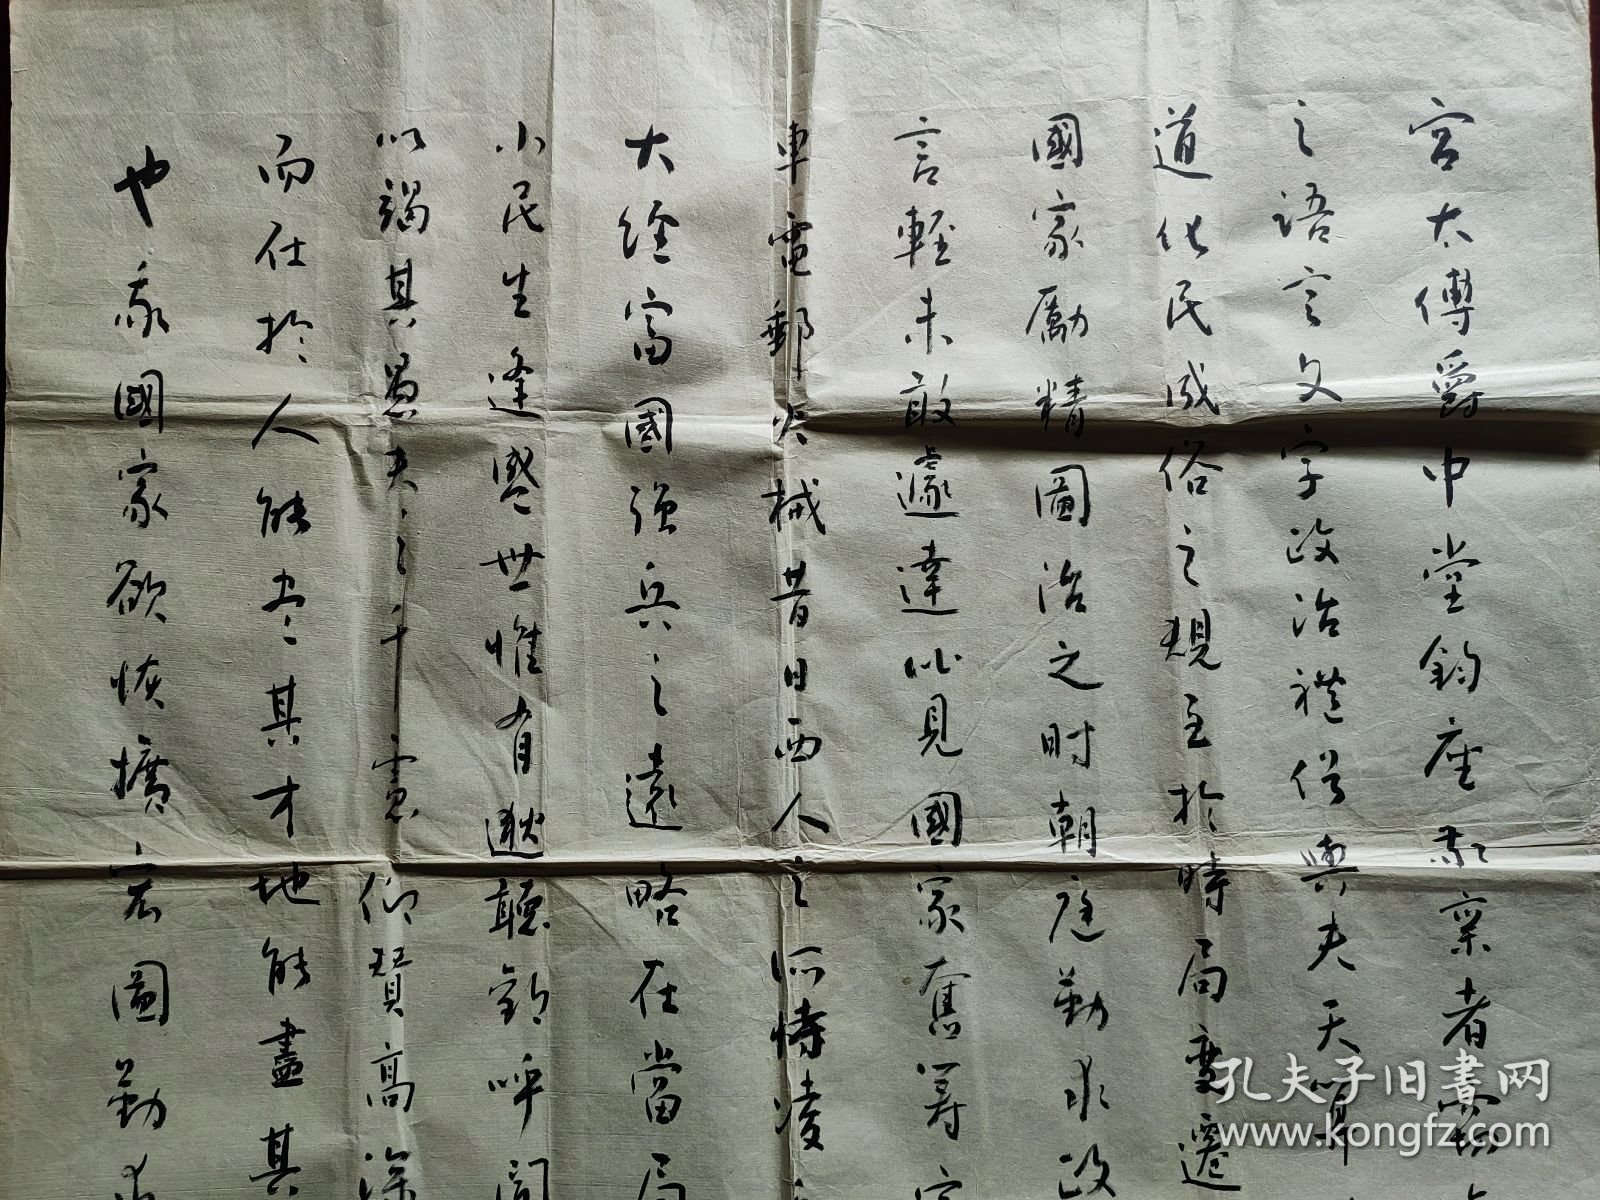 宮太傅爵中堂鈞座敬稟者竊
之語言文字政治禮俗與夫天算
道化民成俗之規至於時局變遷
國家勵精圖治之時朝庭勤求政
言輕未敢遽達此見國家奮籌
車電郵火械昔日西人之所恃凌
大經富國強兵之遠略在當局
小民生逢盛世惟有逖聽歡呼聞
以竭其愚夫之千慮仰贊高深
而在於人能盡其才地能盡其
也我國家欲恢擴宏圖勤求
孔夫子旧書网
www.kongfz.com